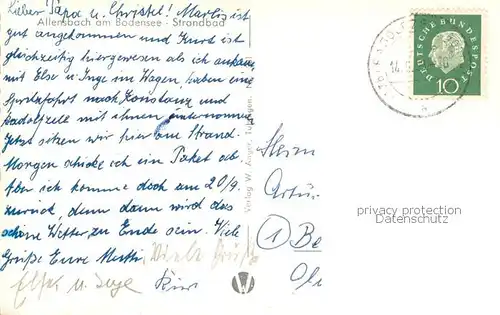 Lieber Papa u. Christel! Marliz ist
Allensbach am Bodensee - Strandbad
gut angekommen und Kurd ist
gleichzeitig hiergewesen als ich ankam
mit Else u. Inge im Wagen, haben eine
Spazierfahrt nach Konstanz und
Radolfzell mit ihnen unternommen
Jetzt sitzen wir hier am Strand
Morgen schicke ich ein Paket ab.
Aber ich komme doch am 20/9.
zurück, denn dann wird das
schöne Wetter zu Ende sein. Viele
Grüße Eure Mutti. Viele Grüße
Verlag W. Anger, Tübingen
DEUTSCHE BUNDESPOST
10
Herrn
Artur
privacy protection
Datenschutz
1 Be